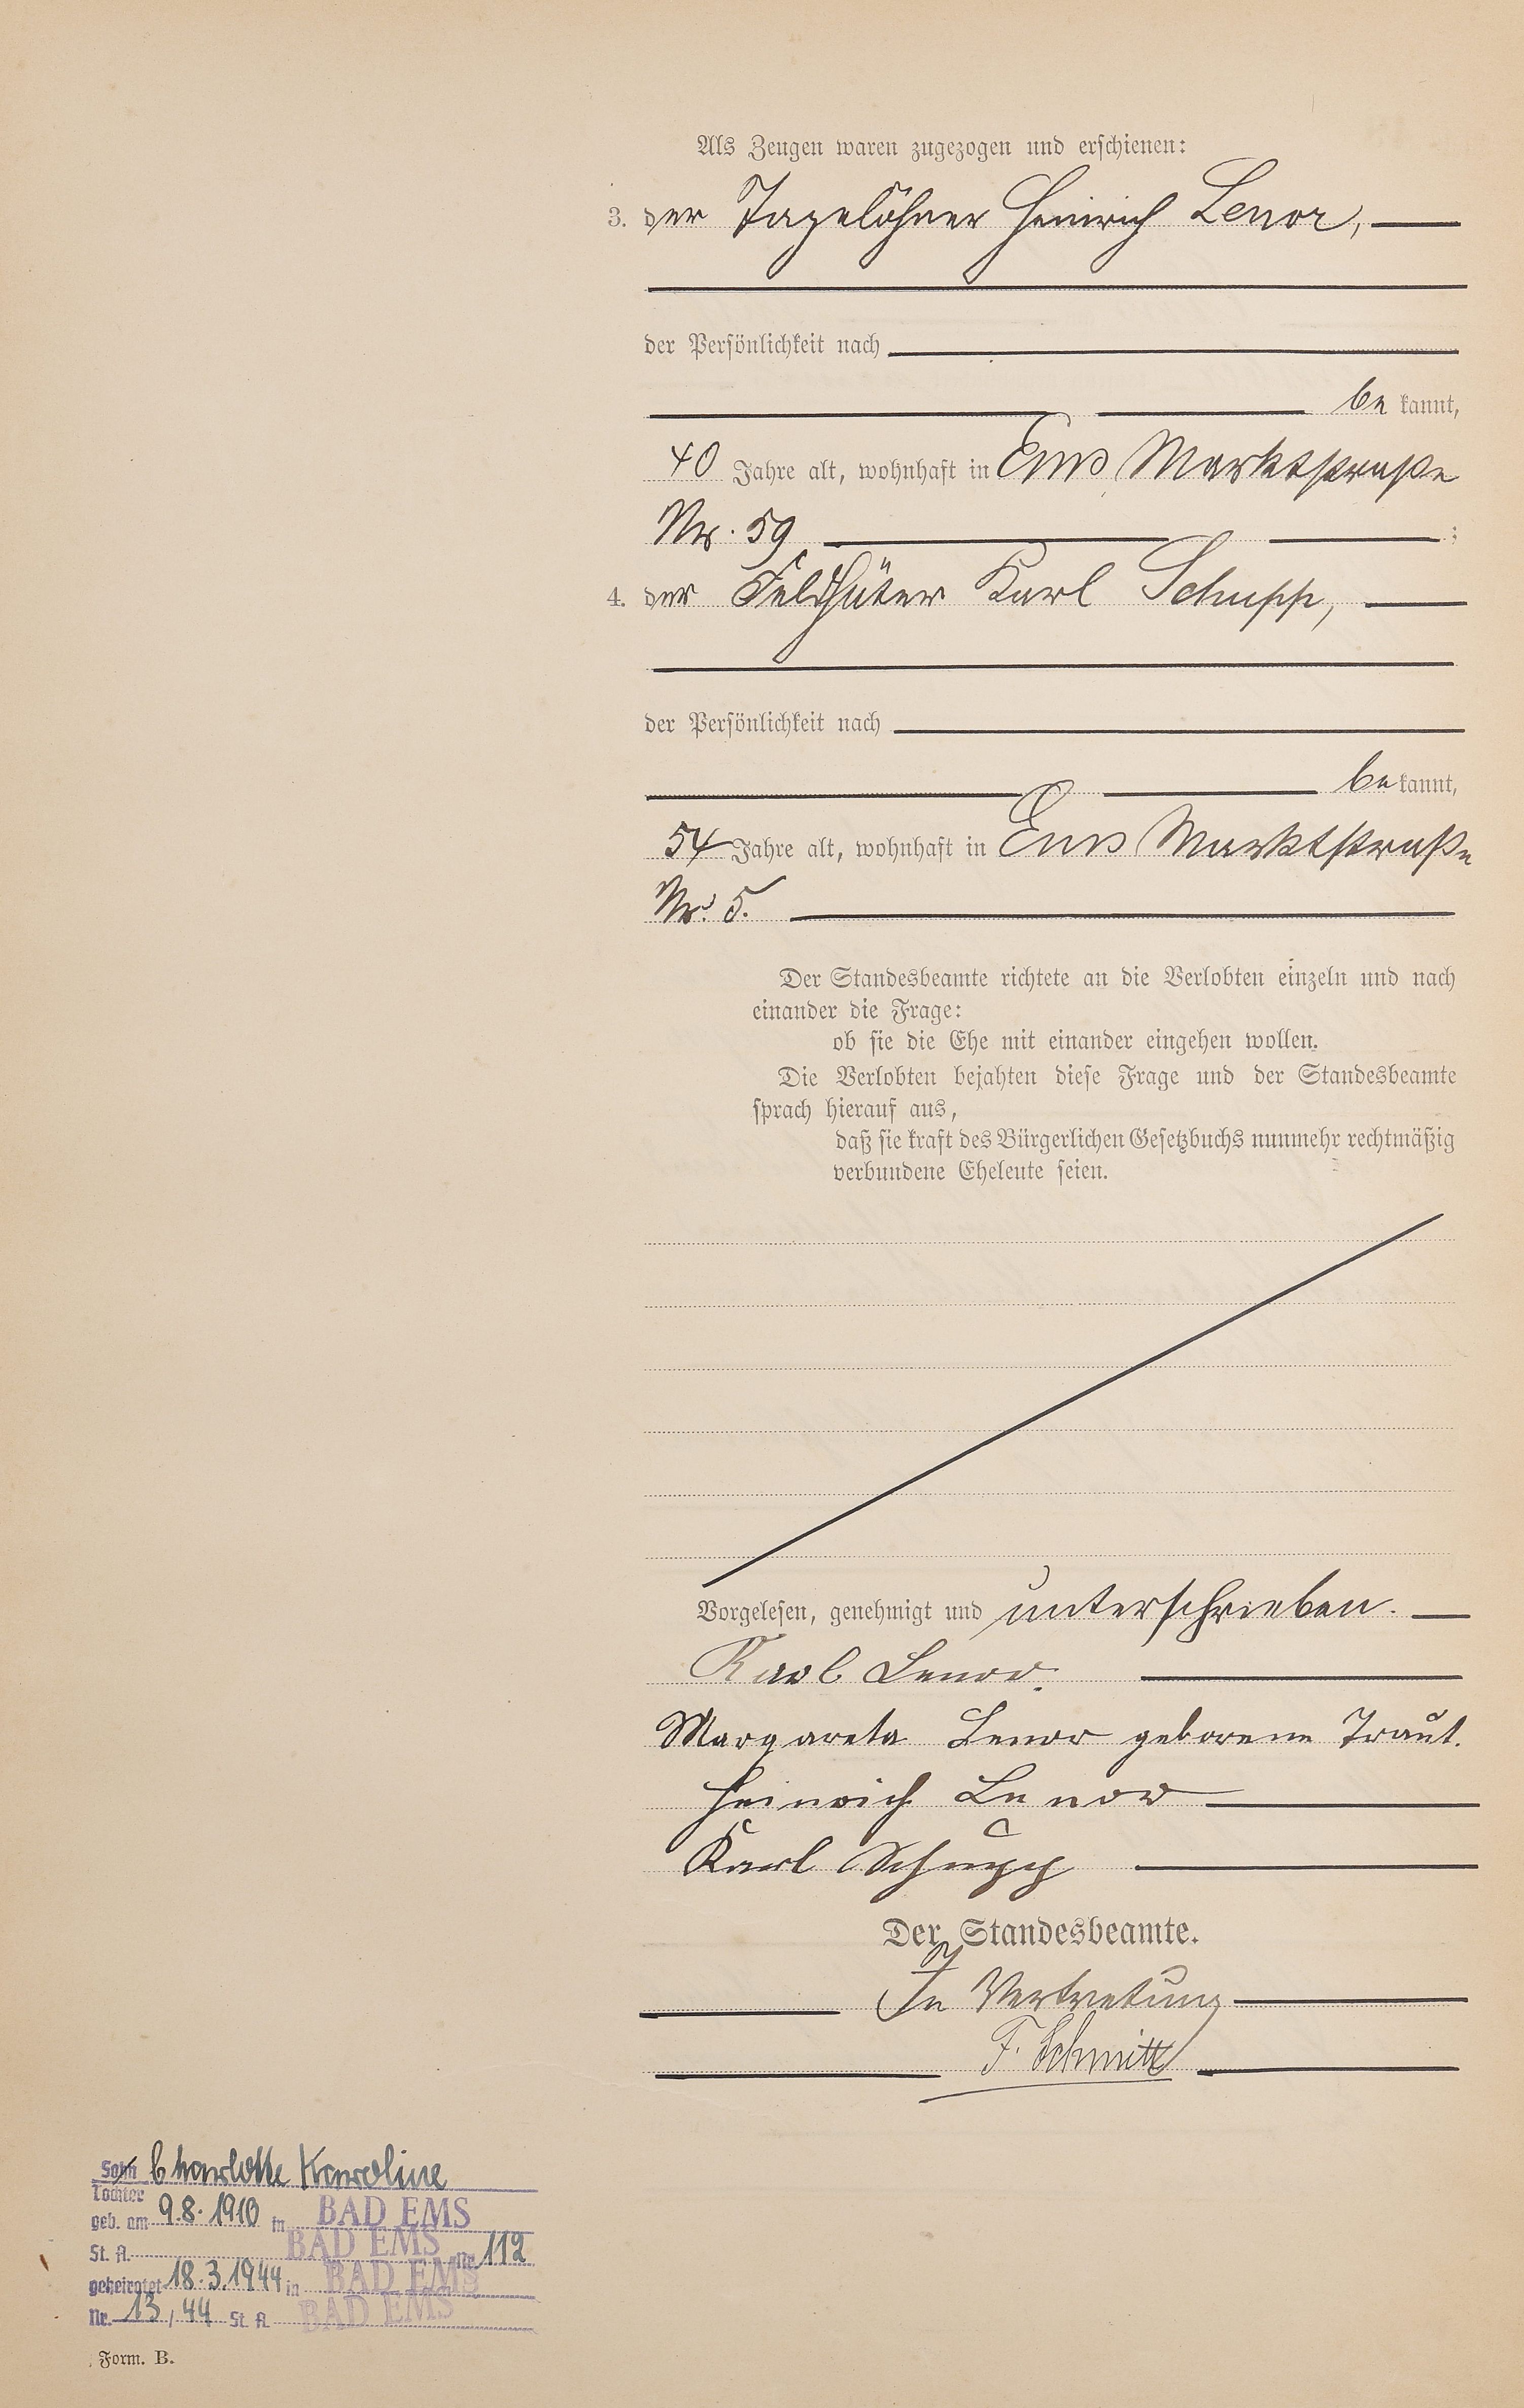 Als Zeugen waren zugezogen und erschienen:
3. der Tagelöhner Heinrich Lenor,
der Persönlichkeit nach
bekannt,
40 Jahre alt, wohnhaft in Ems Marktstraße
Nr. 59 ;
4. der Feldhüter Karl Schupp,
der Persönlichkeit nach
bekannt,
54 Jahre alt, wohnhaft in Ems Marktstraße
Nr. 5.
Der Standesbeamte richtete an die Verlobten einzeln und nach
einander die Frage:
ob sie die Ehe mit einander eingehen wollen.
Die Verlobten bejahten diese Frage und der Standesbeamte
sprach hierauf aus,
daß sie kraft des Bürgerlichen Gesetzbuchs nunmehr rechtmäßig
verbundene Eheleute seien.
Vorgelesen, genehmigt und unterschrieben.
Karl Lenor.
Margareta Lenor geborene Traut.
Heinrich Lenor
Karl Schupp
Der Standesbeamte.
In Vertretung
F. Schmitt
Sohn Charlotte Karoline
Tochter
geb. am 9.8.1910 in BAD EMS
St. A. BAD EMS Nr. 112
geheiratet 18.3.1944 in BAD EMS
Nr. 13/44 St. A. BAD EMS
Form. B.